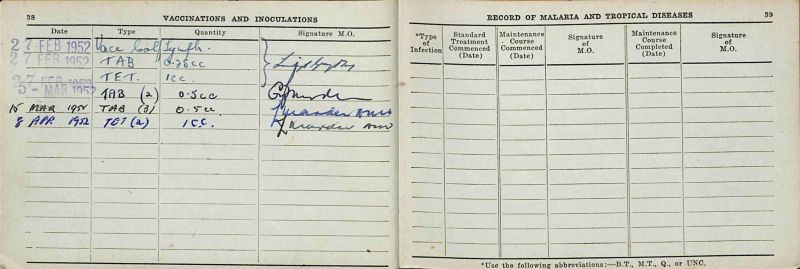 38
VACCINATIONS AND INOCULATIONS
Date Type Quantity Signature M.O.
27 FEB 1952 Vacc Lymph.
27 FEB 1952 TAB 0.25cc
27 FEB 1952 TET. 1cc.
5 - MAR 1952 TAB (2) 0.5cc
15 MAR 1952 TAB (3) 0.5cc
8 APR 1952 TET (2) 1cc.
RECORD OF MALARIA AND TROPICAL DISEASES 39
*Type of Infection
Standard Treatment Commenced (Date)
Maintenance Course Commenced (Date)
Signature of M.O.
Maintenance Course Completed (Date)
Signature of M.O.
*Use the following abbreviations:—B.T., M.T., Q., or UNC.